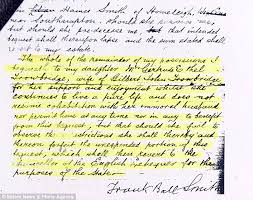 James Smith of Homeleigh,
near Southampton, should she survive me,
but should she predecease me, that intended
bequest shall thereupon lapse and the sum stated shall
my estate.
The whole of the remainder of my possessions I
bequeath to my daughter Mrs Gertrude Ethel
Trowbridge, wife of Gilbert John Trowbridge
for her support and enjoyment whilst she
continues to live a pure life and does not
resume cohabition with her immoral husband
nor permit him at any time nor in any to benefit
from this bequest, but that should she fail to
observe these restrictions she shall thereby and
thereon forfeit the unexpended portion of this
bequest, which shall then revert to the
of the English Exchequer for the
purposes of the State.
Frank Bell Smith